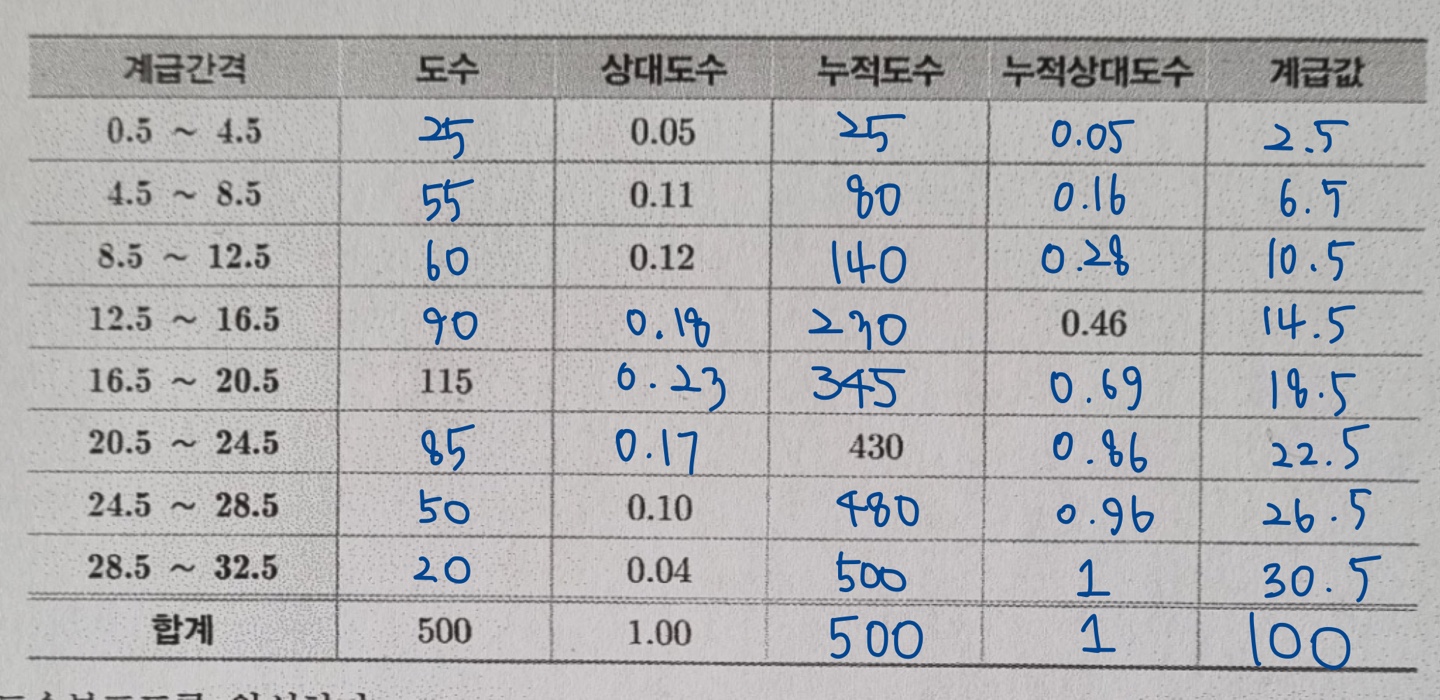 계급간격 도수 상대도수 누적도수 누적상대도수 계급값
0.5 ~ 4.5 25 0.05 25 0.05 2.5
4.5 ~ 8.5 55 0.11 80 0.16 6.5
8.5 ~ 12.5 60 0.12 140 0.28 10.5
12.5 ~ 16.5 90 0.18 230 0.46 14.5
16.5 ~ 20.5 115 0.23 345 0.69 18.5
20.5 ~ 24.5 85 0.17 430 0.86 22.5
24.5 ~ 28.5 50 0.10 480 0.96 26.5
28.5 ~ 32.5 20 0.04 500 1 30.5
합계 500 1.00 500 1 100